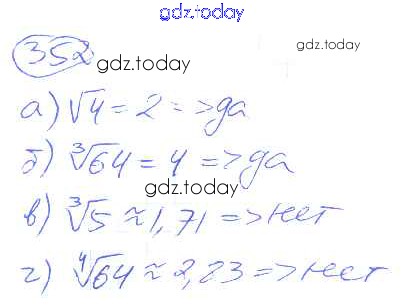 gdz.today
352
gdz.today
gdz.today
а) √4 = 2 => да
б) ∛64 = 4 => да
gdz.today
в) ∛5 ≈ 1,71 => нет
г) ∜64 ≈ 2,23 => нет